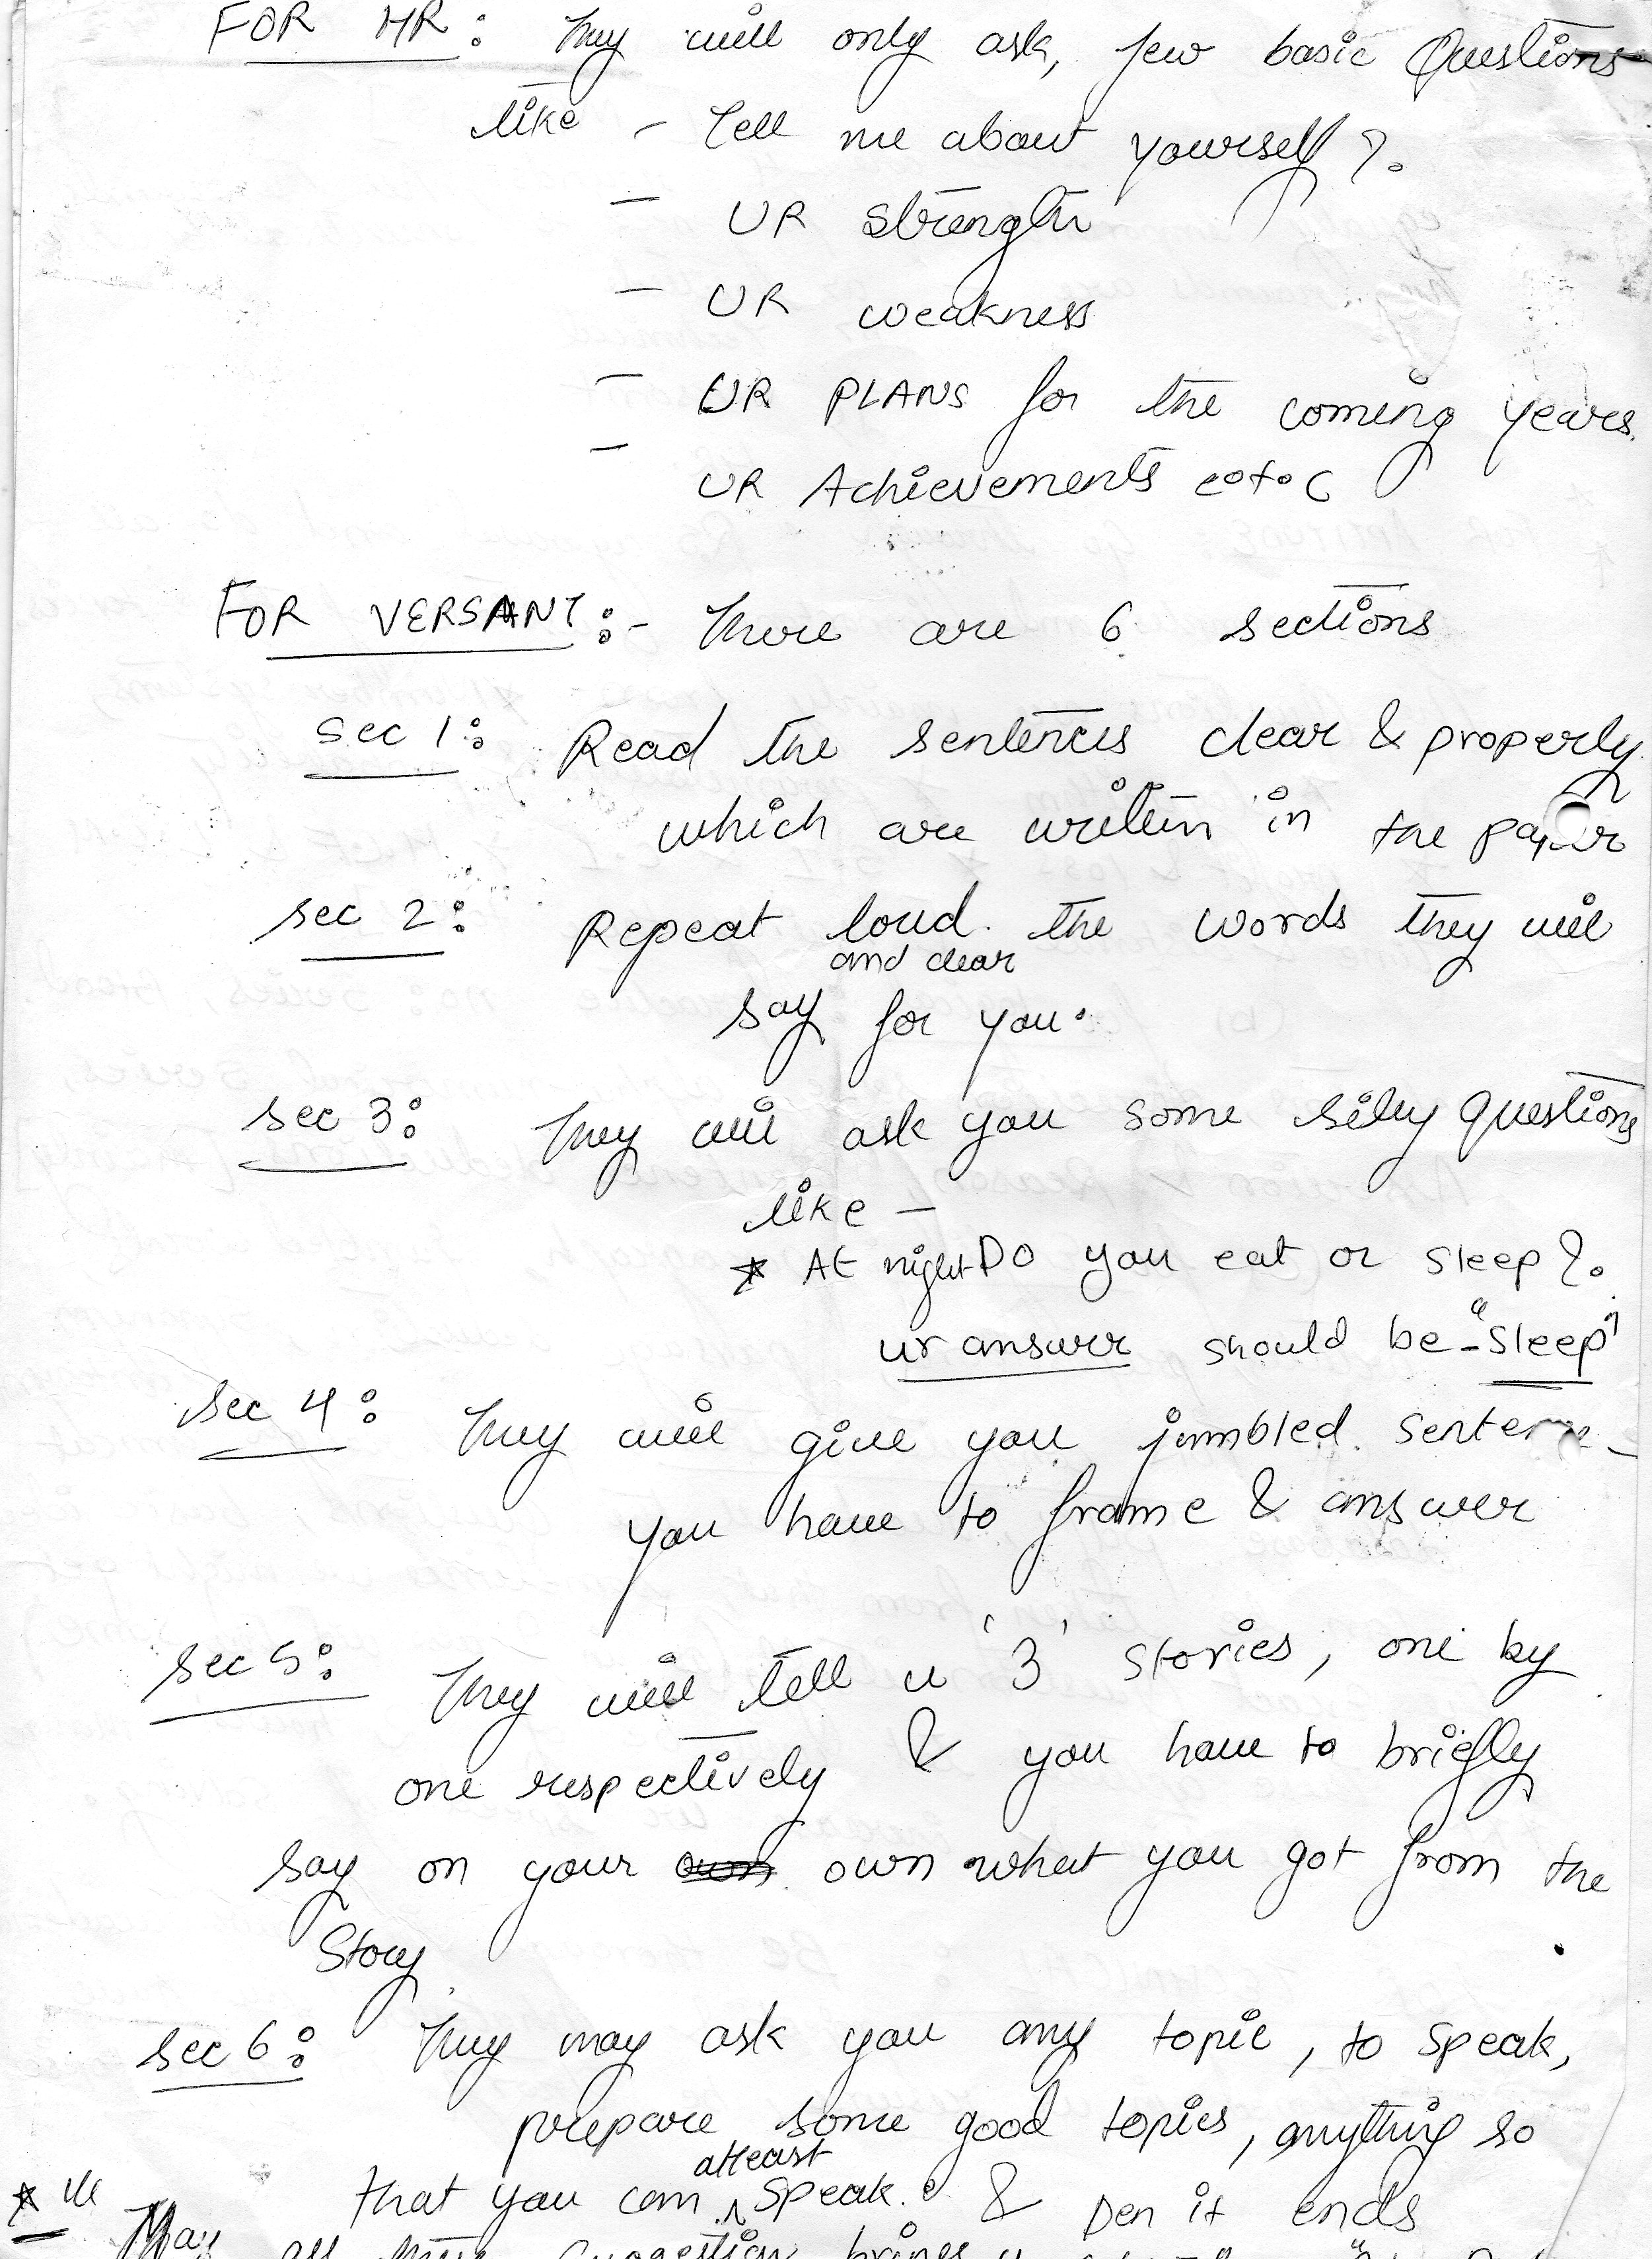 FOR HR: They will only ask, few basic Questions
like - Tell me about yourself ?.
- UR strength
- UR weakness
- UR PLANS for the coming years.
- UR Achievements e.t.c
FOR VERSANT:- There are 6 sections
sec 1: Read the sentences clear & properly
which are written in the paper
sec 2: Repeat loud and clear the words they will
say for you.
sec 3: They will ask you some silly questions
like -
* At night Do you eat or sleep ?.
ur answer should be - "sleep"
sec 4: They will give you jumbled
you have to frame & answer
sec 5: They will tell u '3' stories, one by
one respectively & you have to briefly
say on your own what you got from the
story
sec 6: They may ask you any topic, to speak,
prepare some good topics, anything so
that you can atleast speak. & Den it ends
* 
May all